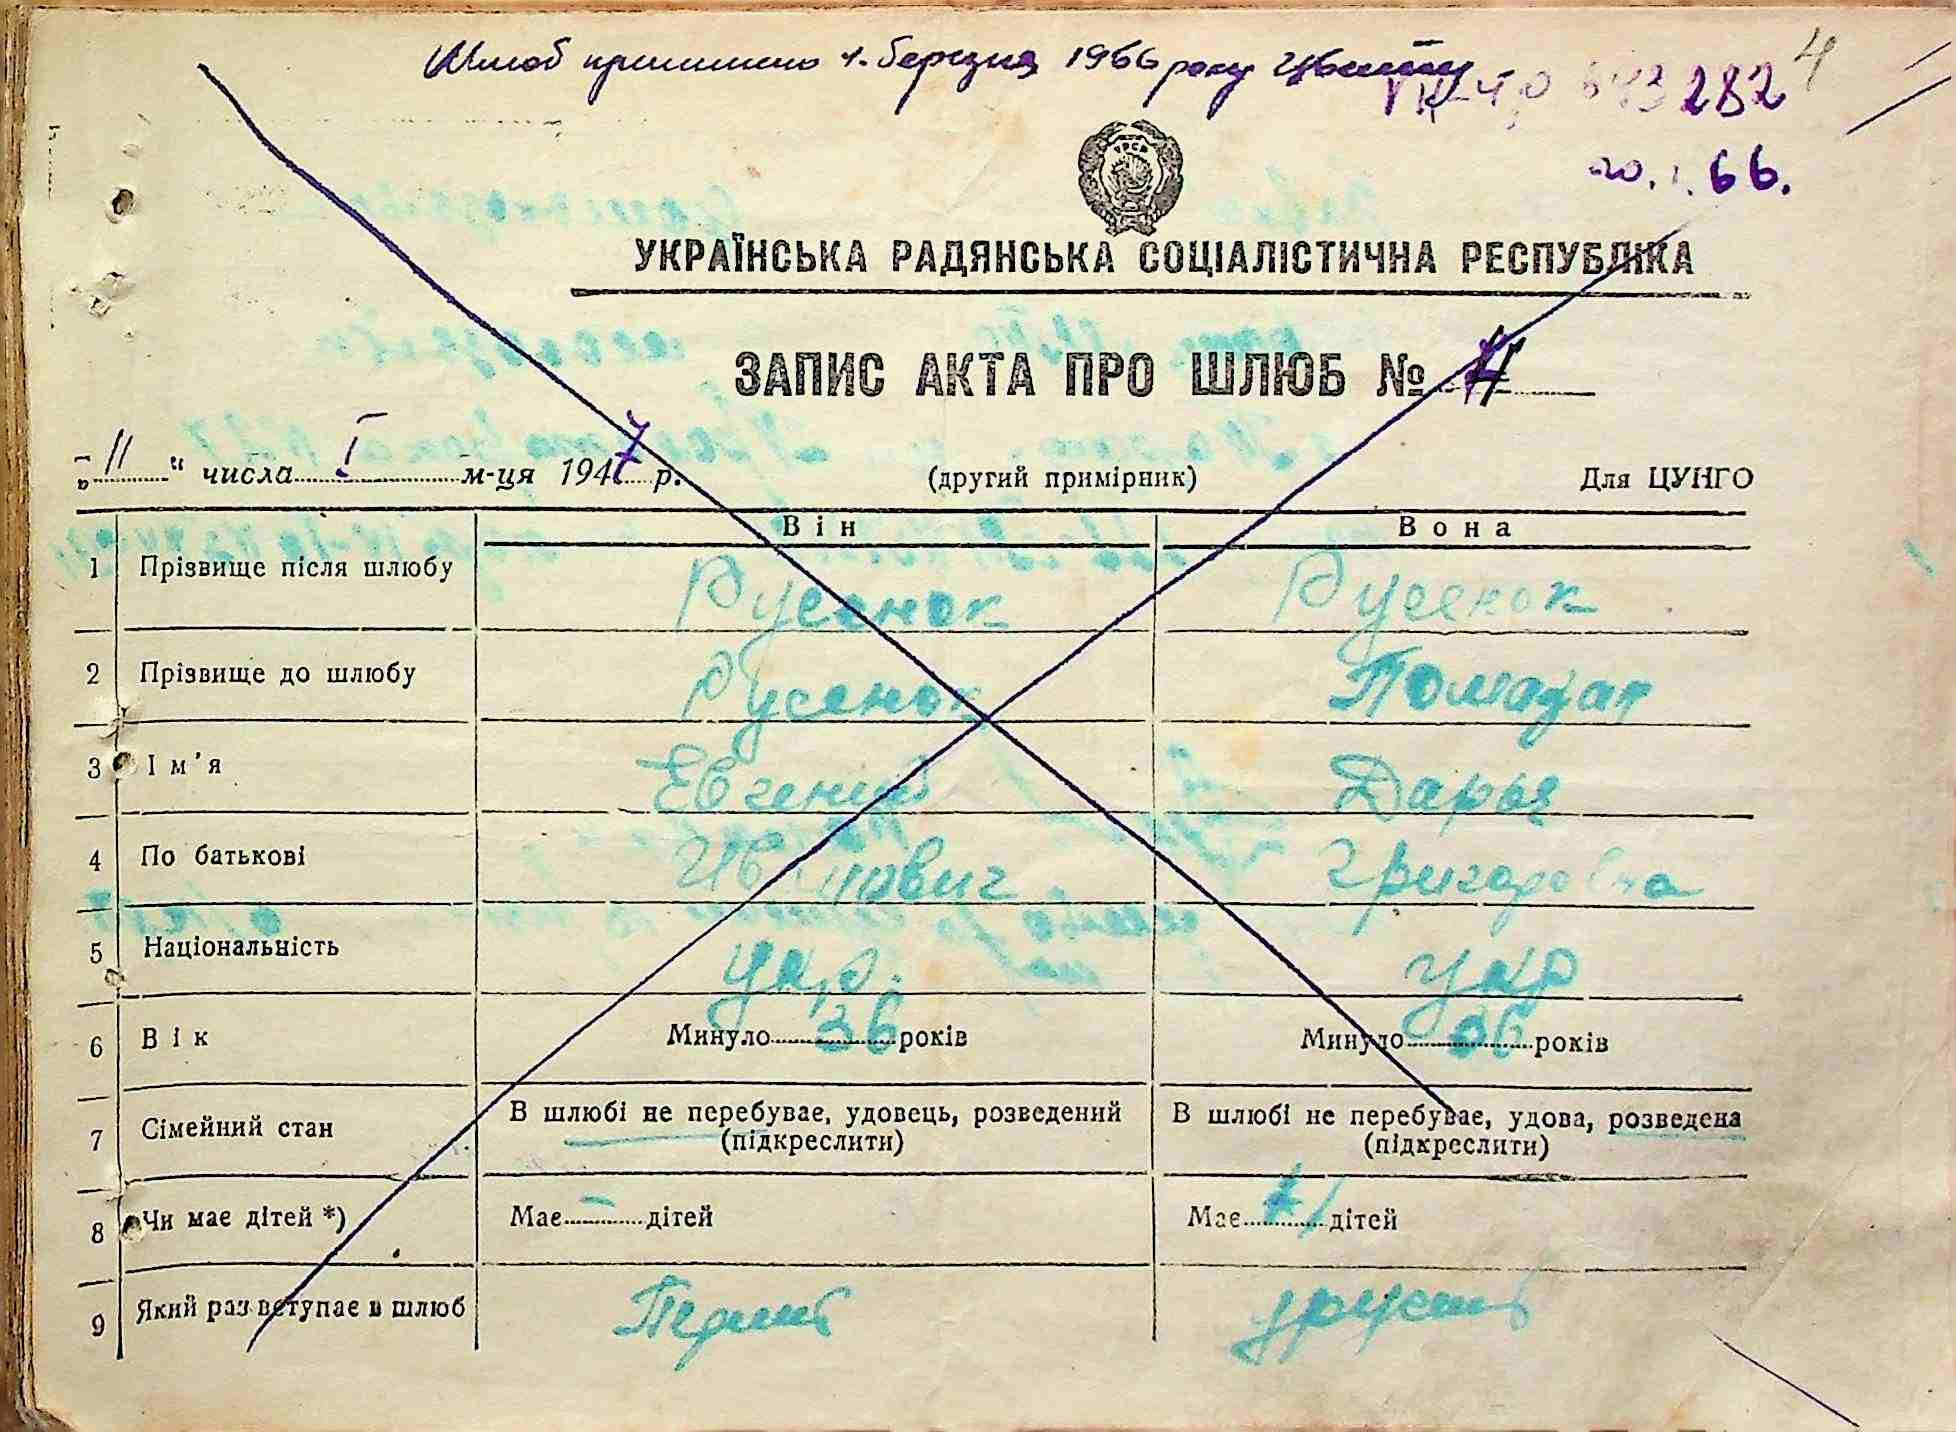 Шлюб припинено 1. березня 1966 року
4
282
66.
УРСР
УКРАЇНСЬКА РАДЯНСЬКА СОЦІАЛІСТИЧНА РЕСПУБЛІКА
ЗАПИС АКТА ПРО ШЛЮБ № 4
„11“ числа I м-ця 1947 р. (другий примірник) Для ЦУНГО
Він Вона
1 Прізвище після шлюбу Русенок Русенок
2 Прізвище до шлюбу Русенок
3 Ім'я Евгений Дарья
4 По батькові Иванович Григоровна
5 Національність укр. укр
6 Вік Минуло 36 років Минуло 36 років
7 Сімейний стан В шлюбі не перебуває, удовець, розведений В шлюбі не перебуває, удова, розведена
(підкреслити) (підкреслити)
8 Чи має дітей *) Має - дітей Має 1 дітей
9 Який раз вступає в шлюб Перший другий